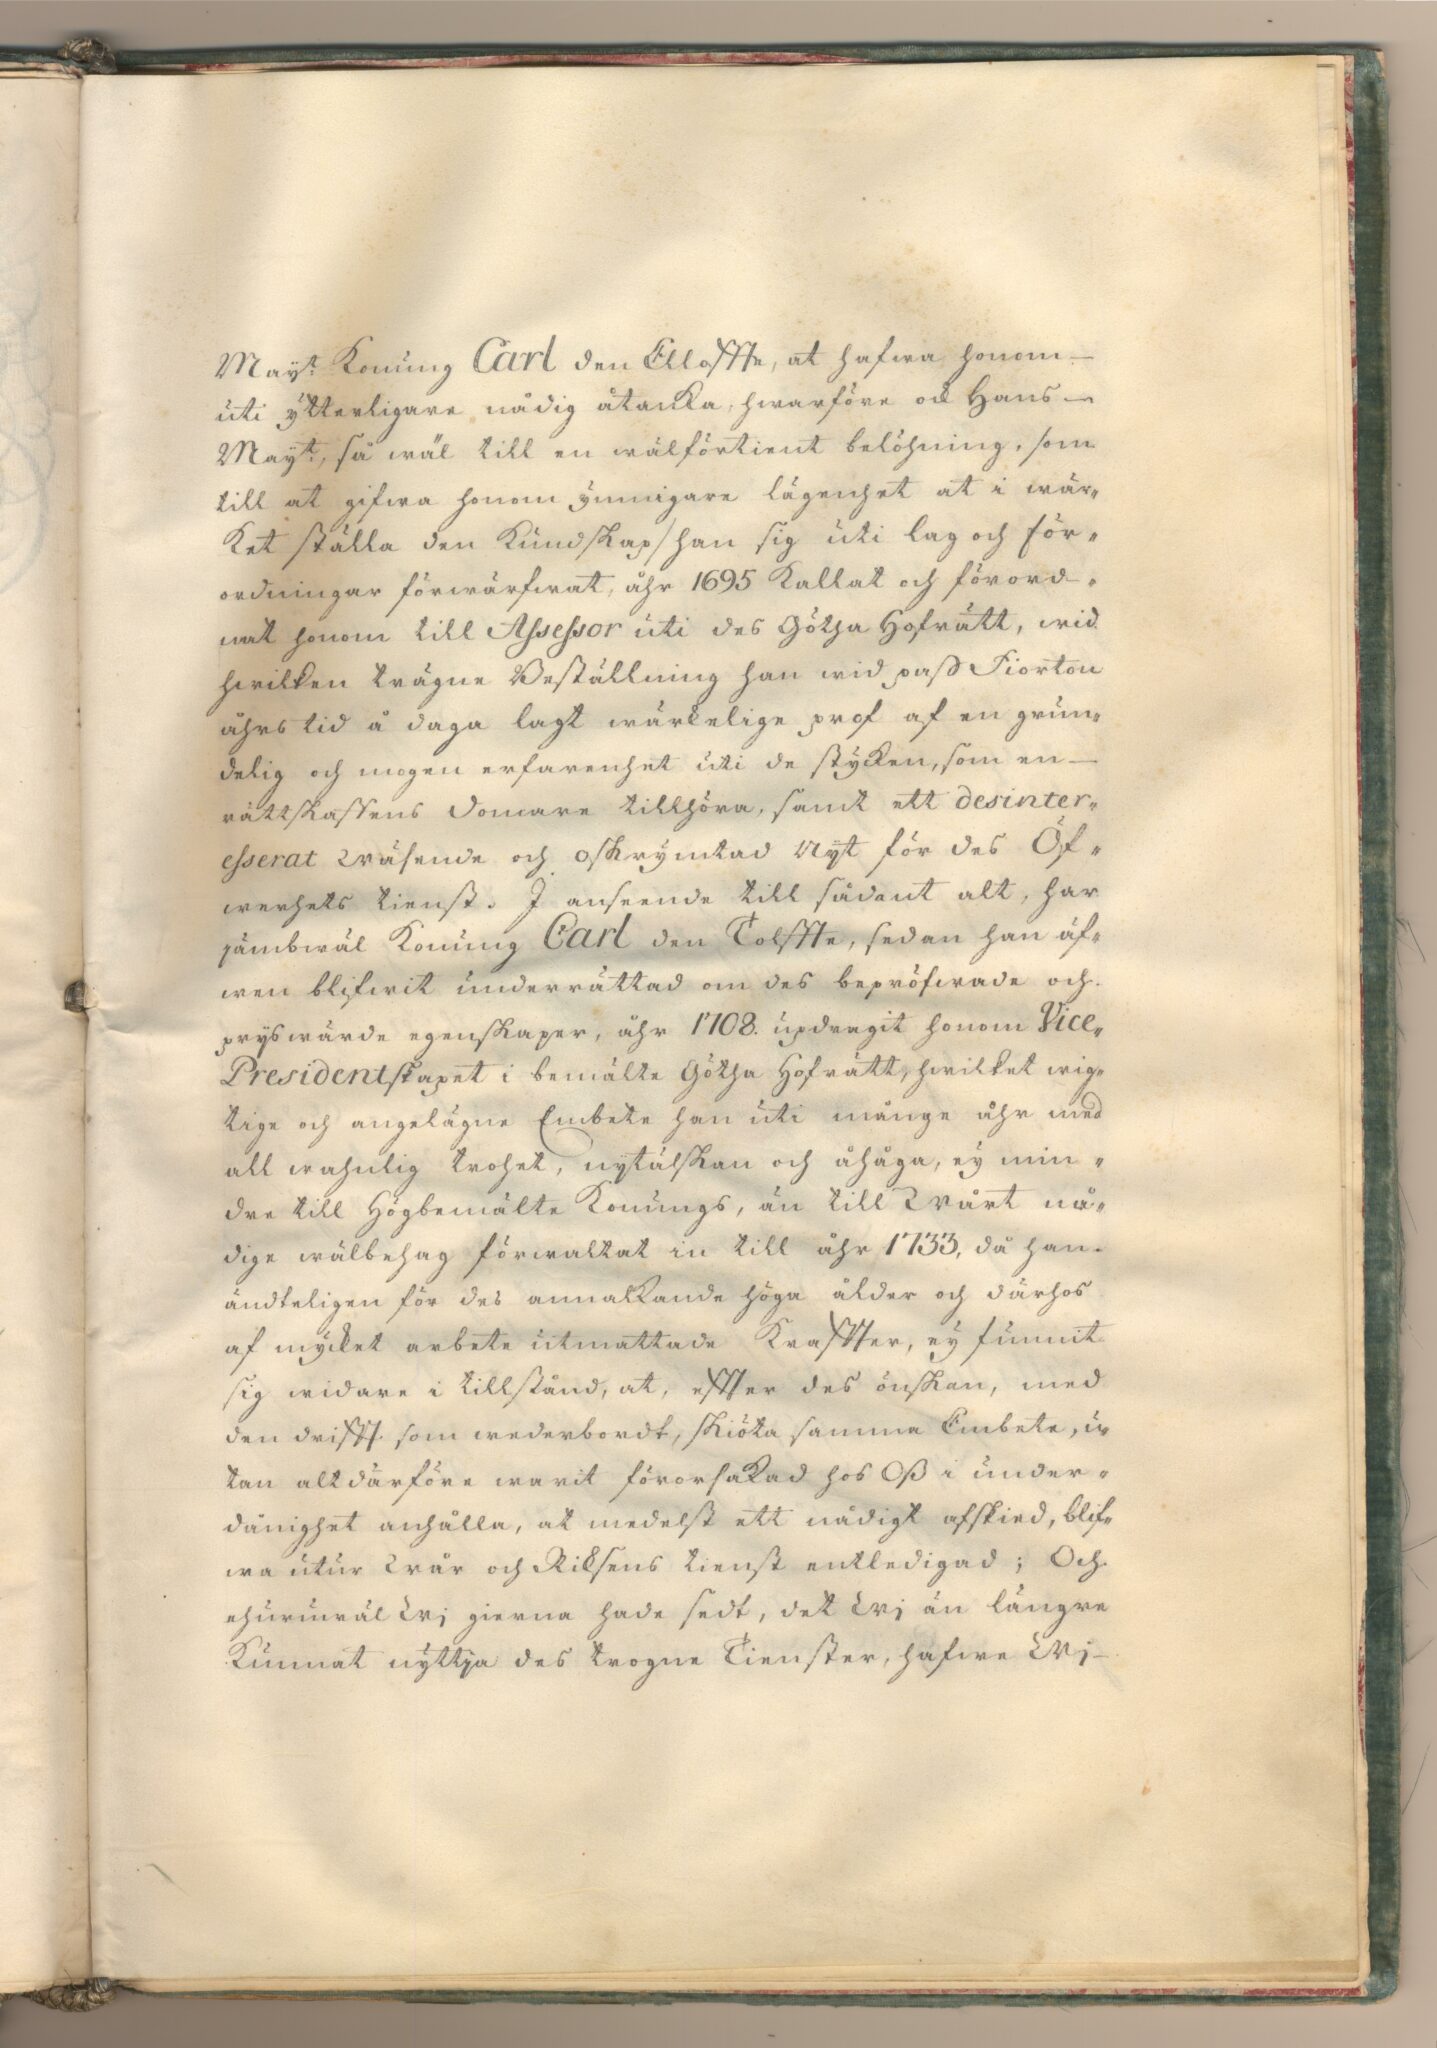 Mayt. Konung Carl den Elloffte, at hafwa honom
uti ytterligare nådig åtanka, hwarföre och Hans
Mayt., så wäl till en wälförtient belöhning, som
till at gifwa honom ymnigare lägenhet at i wär-
ket ställa den Kundskap/han sig uti lag och för-
ordningar förwärfwat, åhr 1695 Kallat och förord-
nat honom till Assessor uti des Götha Hofrätt, wid
hwilken trägne Beställning han wid pass Fiorton
åhrs tid å daga lagt wärkelige prof af en grun-
delig och mogen erfarenhet uti de stycken, som en
rättskaffens Domare tillhöra, samt ett desinter-
esserat wäsende och oskrymtad Nyt för des Öf-
werhets tienst. I anseende till sådant alt, har
jämbwäl Konung Carl den Tolffte, sedan han äf-
wen blifwit underrättad om des bepröfwade och
pryswärde egenskaper, åhr 1708. updragit honom Vice-
Presidentskapet i bemälte Götha Hofrätt, hwilket wig-
tige och angelägne Embete han uti månge åhr med
all wahnlig trohet, nytälskan och åhåga, ey min-
dre till Högbemälte Konungs, än till Wårt nå-
dige wälbehag förwaltat in till åhr 1733, då han
ändteligen för des annalkande höga ålder och därhos
af mycket arbete utmattade Kraffter, ey funnit
sig widare i tillstånd, at, effter des önskan, med
den drifft som wederbordt, skiöta samma Embete, u-
tan altdärföre warit förorsakad hos Oss i under-
dånighet anhålla, at medelst ett nådigt afskied, blif-
wa utur Wår och Riksens tienst entledigad; Och
ehuruwäl Wj gierna hade sedt, det Wj än längre
Kunnat nyttja des trogne Tienster, hafwe Wj